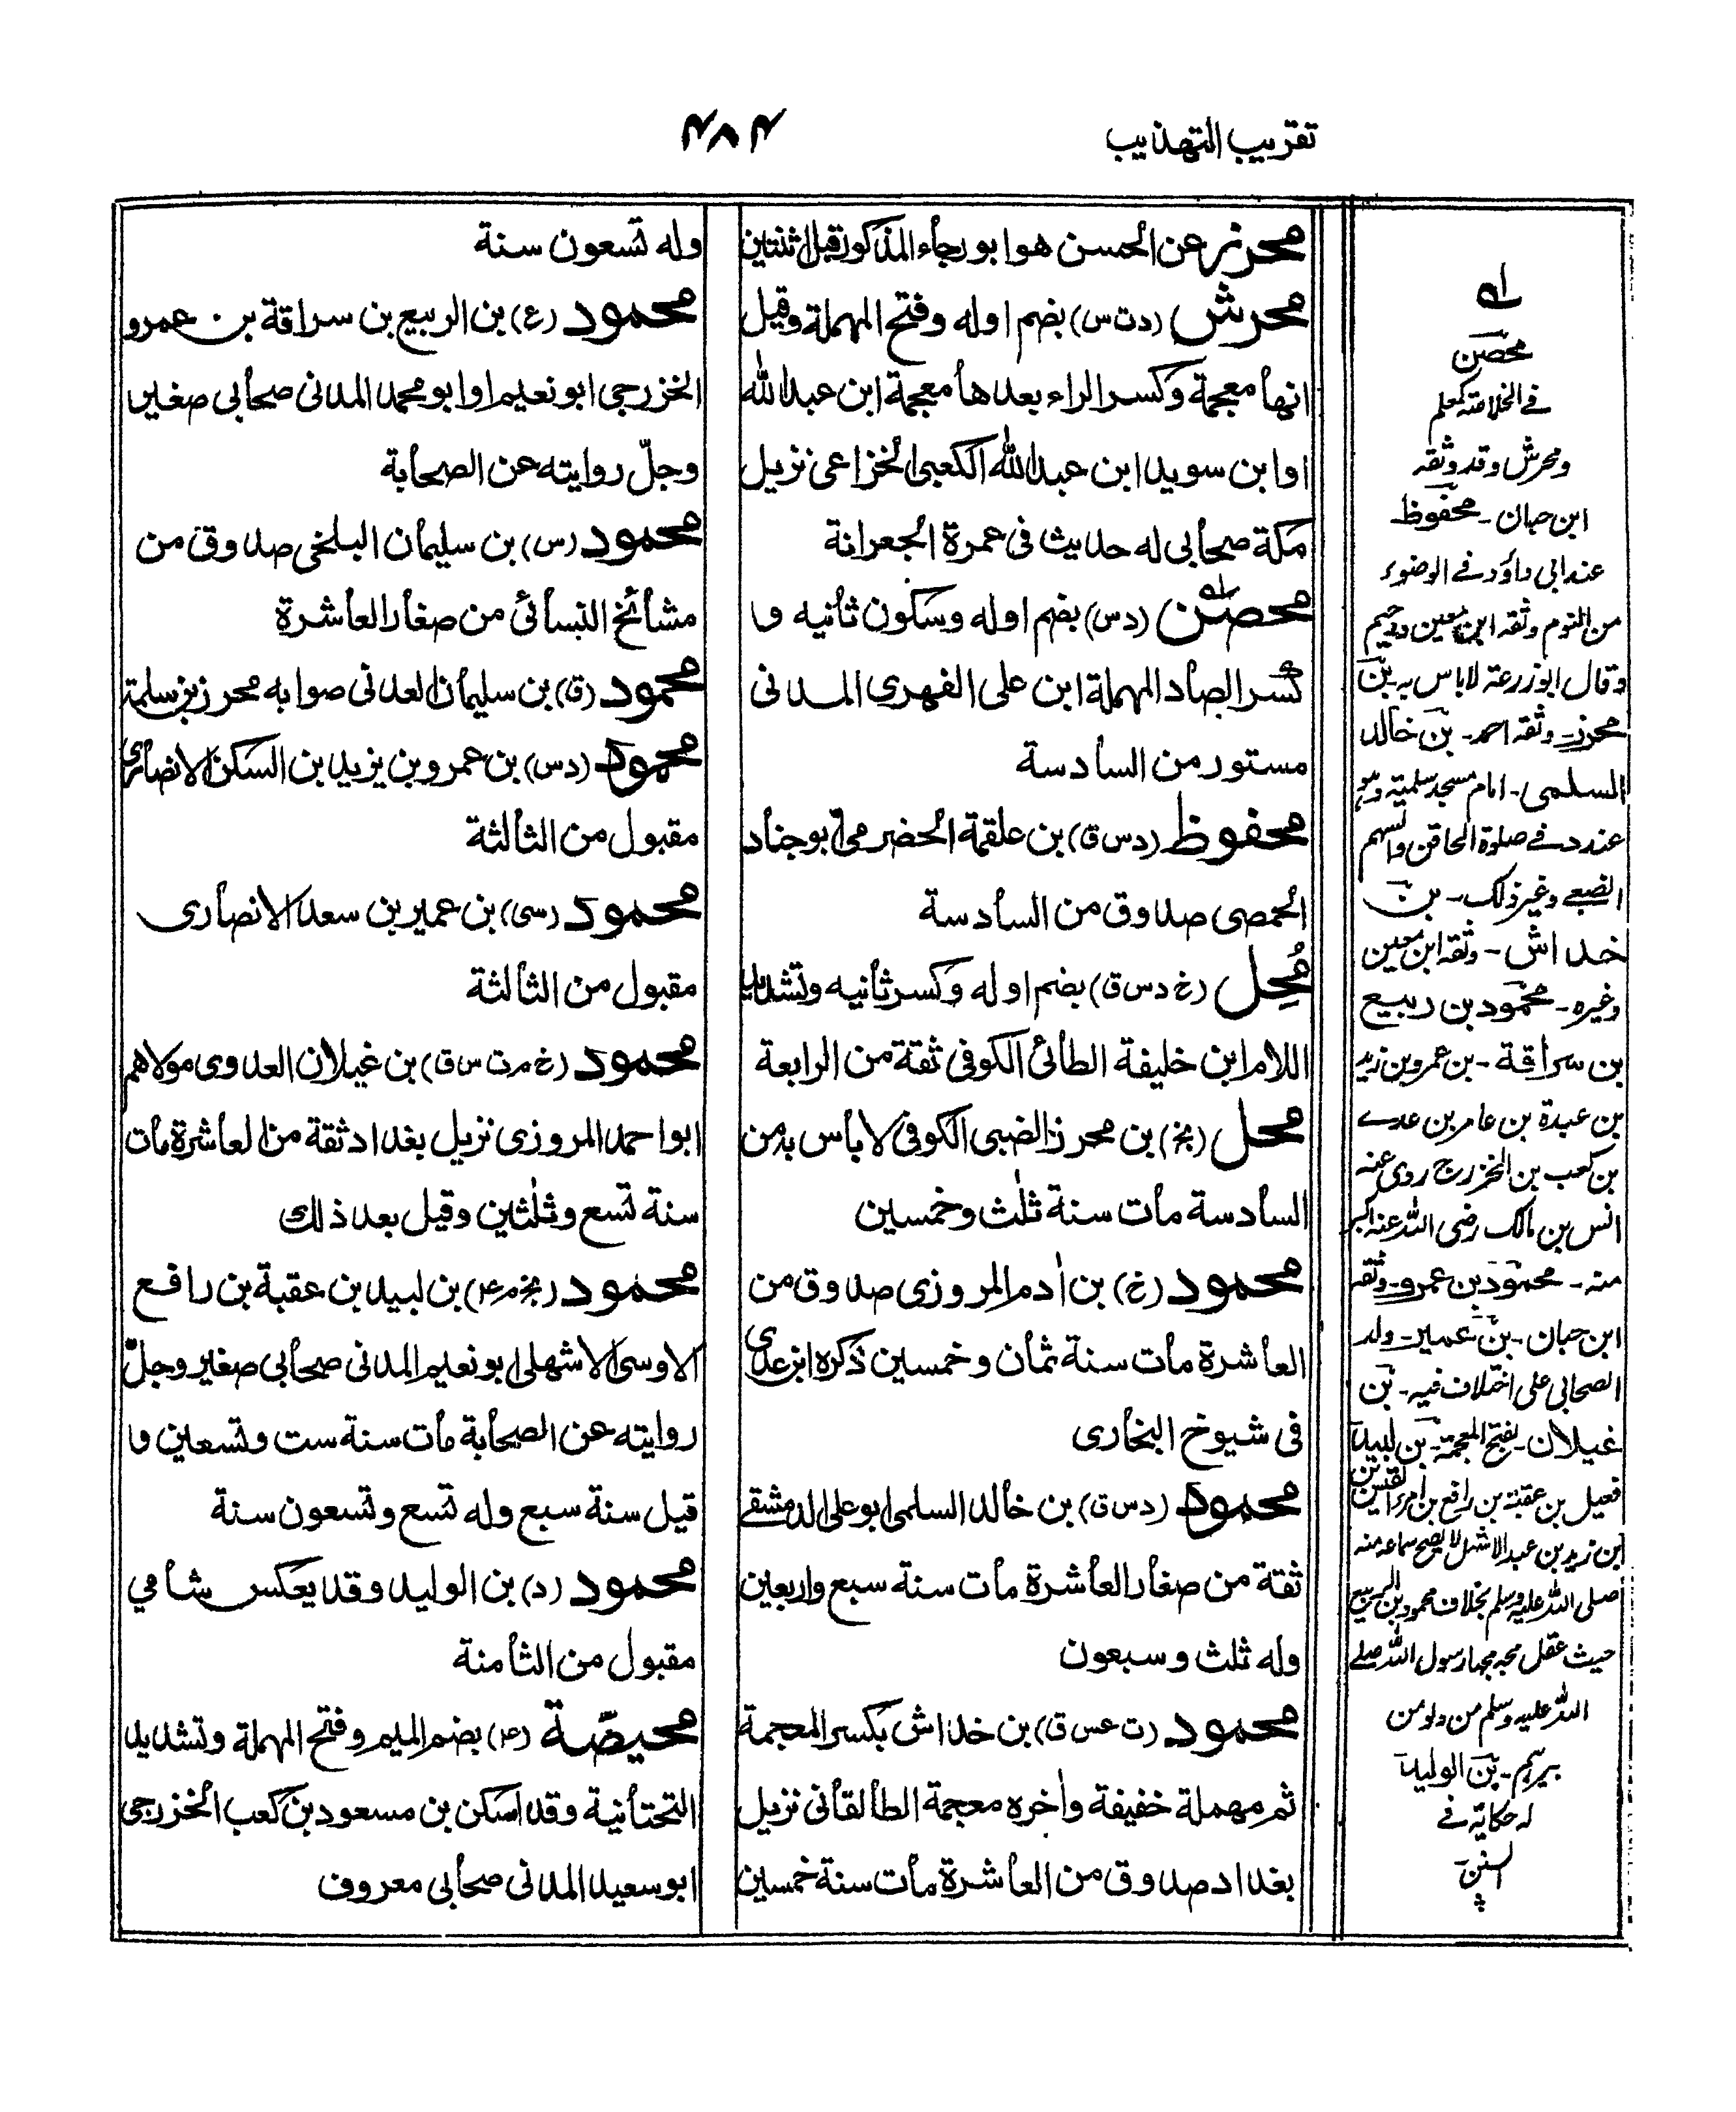 تقريب التهذيب
٤٨٤
محرز عن الحسن هو ابو رجاء المذكور قبل اثنتين
محرش (د ت س) بضم اوله وفتح المهملة وقيل
انها معجمة وكسر الراء بعدها معجمة ابن عبد الله
او ابن سويد ابن عبد الله الكعبي الخزاعي نزيل
مكة صحابي له حديث في عمرة الجعرانة
محصن (د س) بضم اوله وسكون ثانيه و
كسر الصاد المهملة ابن علي الفهري المدني
مستور من السادسة
محفوظ (د س ق) بن علقمة الحضرمي ابو جنادة
الحمصي صدوق من السادسة
مُحِل (خ د س ق) بضم اوله وكسر ثانيه وتشديد
اللام ابن خليفة الطائي الكوفي ثقة من الرابعة
محل (بخ) بن محرز الضبي الكوفي لا بأس به من
السادسة مات سنة ثلث وخمسين
محمود (خ) بن اٰدم المروزي صدوق من
العاشرة مات سنة ثمان وخمسين ذكره ابن عدي
في شيوخ البخاري
محمود (د س ق) بن خالد السلمي ابو علي الدمشقي
ثقة من صغار العاشرة مات سنة سبع واربعين
وله ثلث وسبعون
محمود (ت عس ق) بن خداش بكسر المعجمة
ثم مهملة خفيفة واٰخره معجمة الطالقاني نزيل
بغداد صدوق من العاشرة مات سنة خمسين
وله تسعون سنة
محمود (ع) بن الربيع بن سراقة بن عمرو
الخزرجي ابو نعيم او ابو محمد المدني صحابي صغير
وجلّ روايته عن الصحابة
محمود (س) بن سليمان البلخي صدوق من
مشائخ النسائي من صغار العاشرة
محمود (ق) بن سليمان العدني صوابه محرز بن سلمة
محمود (د س) بن عمرو بن يزيد بن السكن الانصاري
مقبول من الثالثة
محمود (سي) بن عمير بن سعد الانصاري
مقبول من الثالثة
محمود (خ م ت س ق) بن غيلان العدوي مولاهم
ابو احمد المروزي نزيل بغداد ثقة من العاشرة مات
سنة تسع وثلٰثين وقيل بعد ذلك
محمود (بخ م ٤) بن لبيد بن عقبة بن رافع
الاوسي الاشهلي ابو نعيم المدني صحابي صغير وجلّ
روايته عن الصحابة مات سنة ست وتسعين و
قيل سنة سبع وله تسع وتسعون سنة
محمود (د) بن الوليد وقد يعكس شامي
مقبول من الثامنة
محيصّة (٤) بضم الميم وفتح المهملة وتشديد
التحتانية وقد اسكن بن مسعود بن كعب الخزرجي
ابو سعيد المدني صحابي معروف
له
محصن
في الخلاصة كمعلم
ومحرش وقد وثقه
ابن حبان - محفوظ
عند ابي داؤد في الوضوء
من النوم وثقه ابن معين ودحيم
وقال ابو زرعة لا باس به - بن
محرز - وثقه احمد - بن خالد
السلمي - امام مسجد سلمية وهو
عند د في صلوة الحاقن و
الضبعي وغير ذلك - بن
خداش - وثقه ابن معين
وغيره - محمود بن ربيع
بن سراقة - بن عمرو بن زيد
بن عبدة بن عامر بن عدي
بن كعب بن الخزرج روى عنه
انس بن مالك رضي الله عنه اكبر
منه - محمود بن عمرو - وثقه
ابن حبان - بن عمير - ولد
الصحابي على اختلاف فيه - بن
غيلان - بفتح المعجمة - بن لبيد
فعيل بن عقبة بن رافع بن امرء القيس
ابن زيد بن عبد الاشهل لا يصح سماعه منه
صلى الله عليه وسلم بخلاف محمود بن الربيع
حيث عقل مجة مجها رسول الله صلى
الله عليه وسلم من دلو من
بيرهم - بن الوليد
له حكاية في
السنن